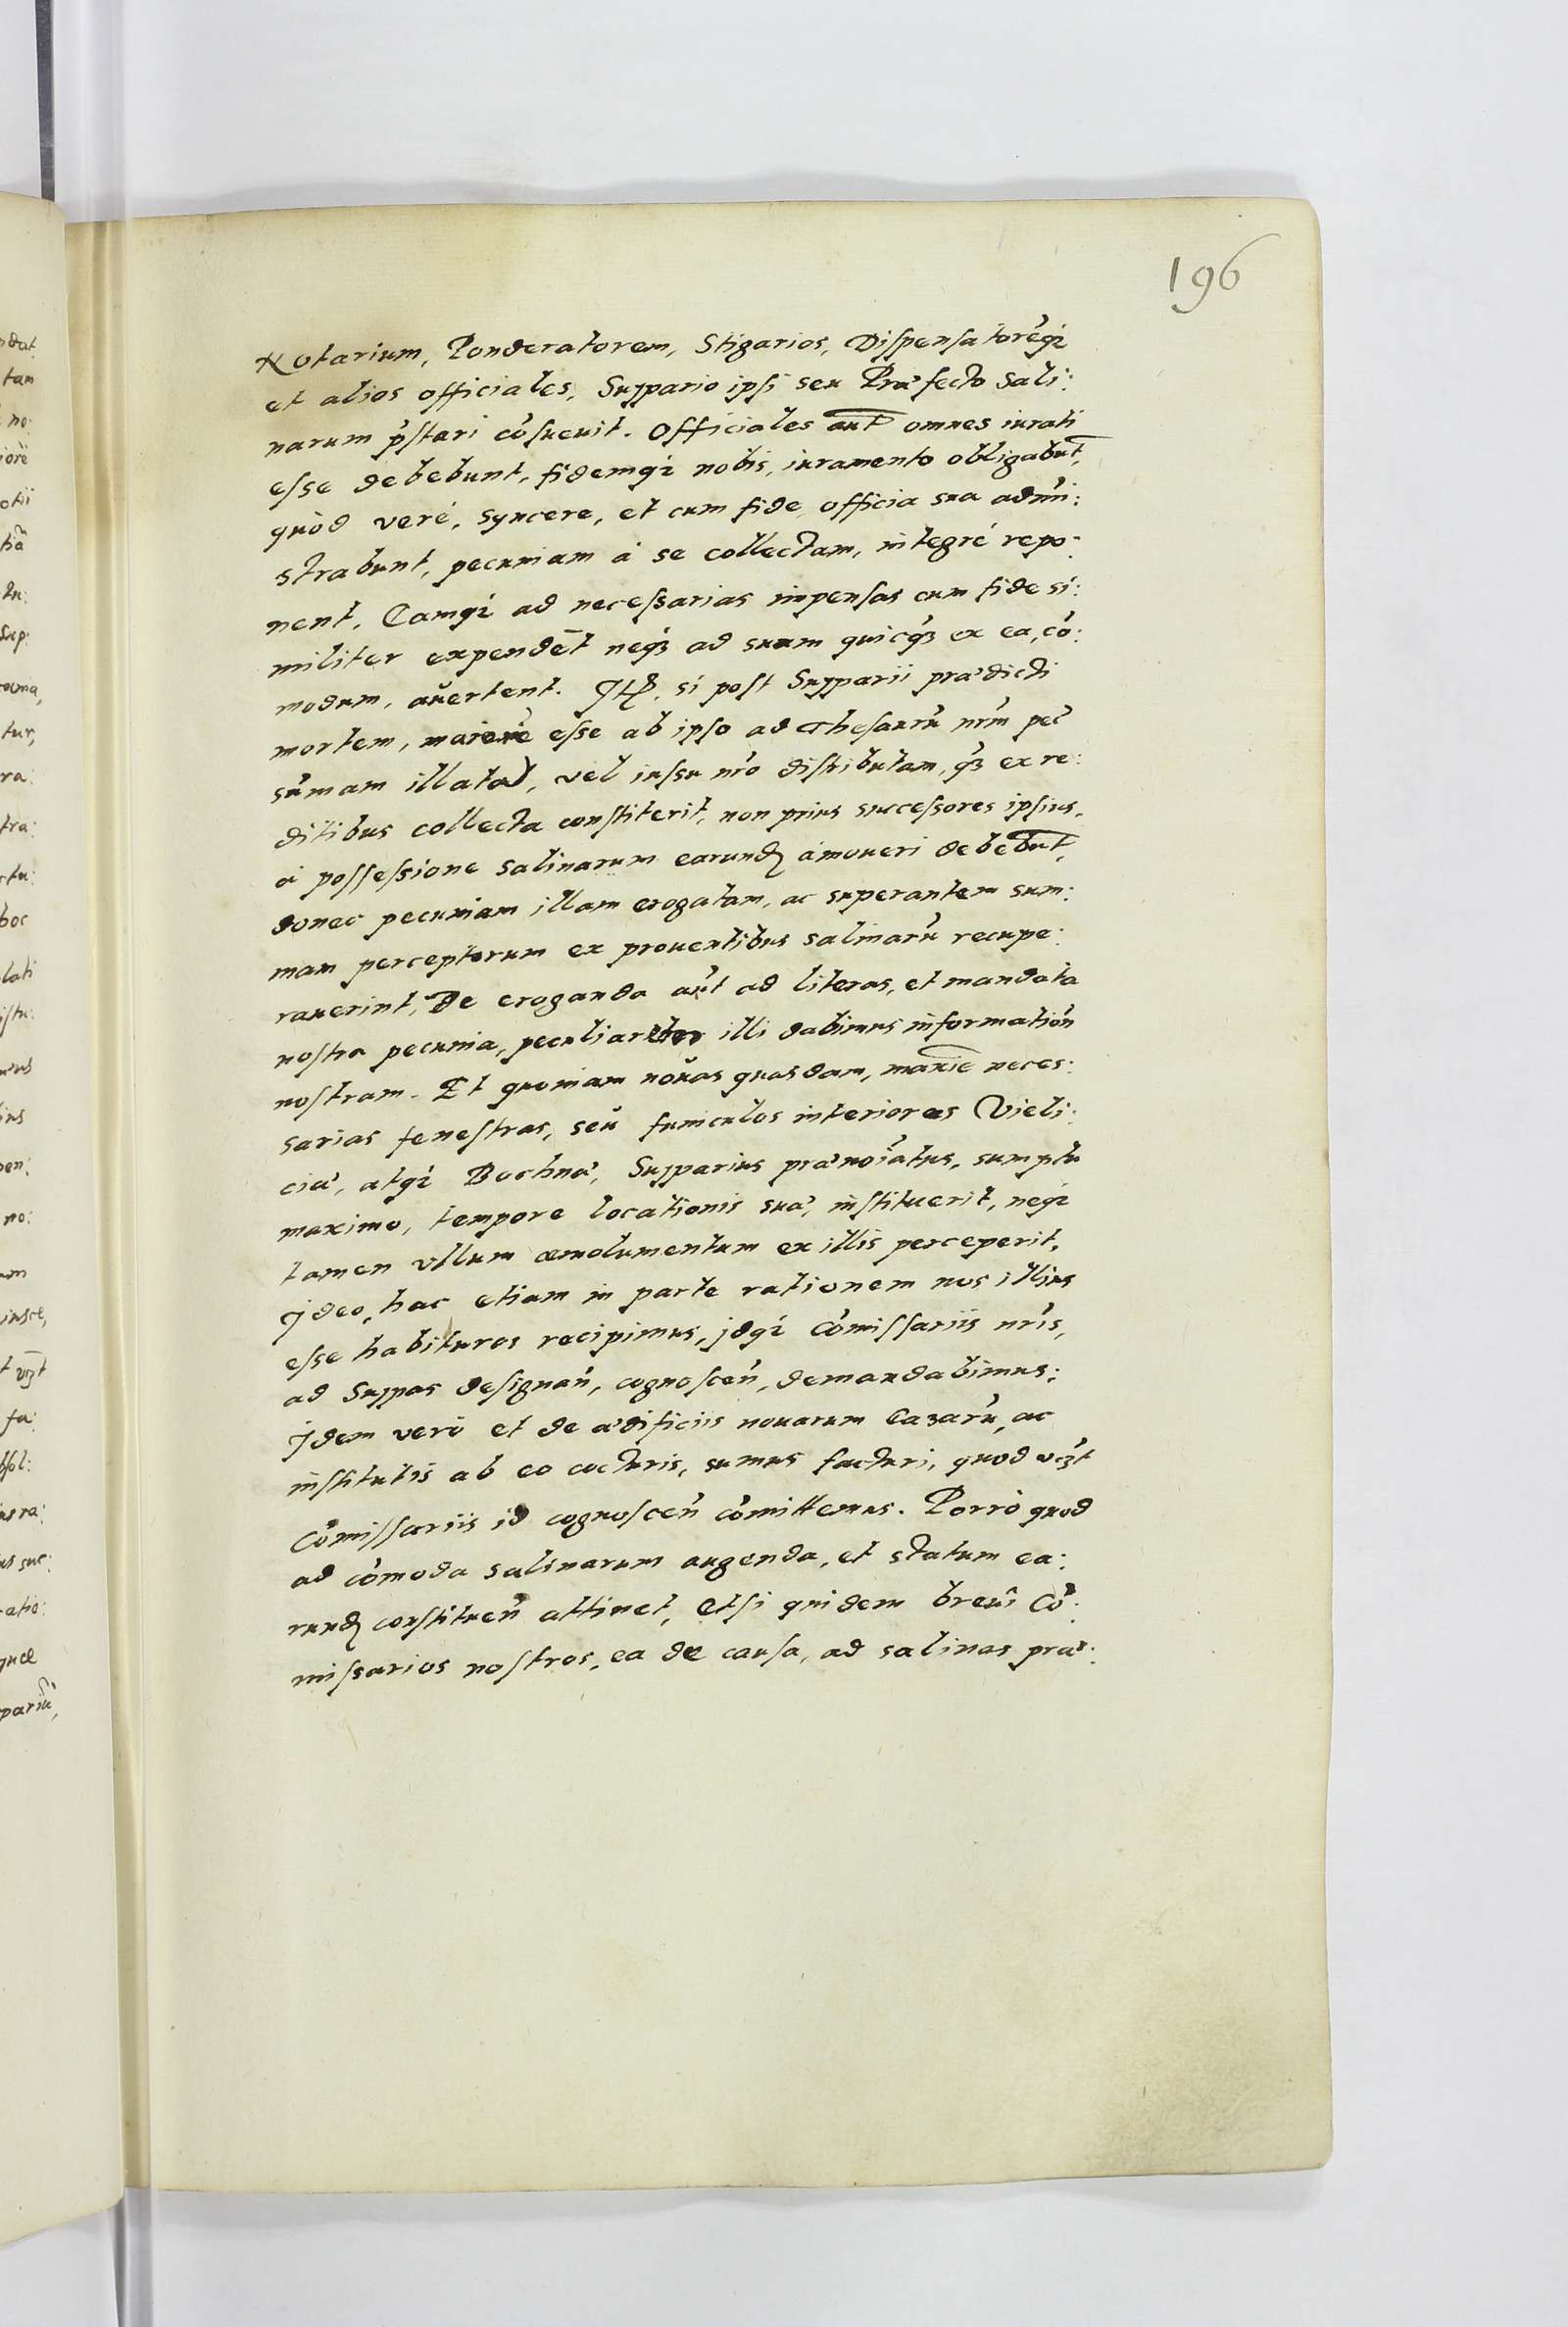 196
Notarium, Ponderatorem, Stigarios, Dispensatorẽqȝ
et alios officiales, Suppario ipsi seu Præfecto Sali:
narum p̃stari cõsueuit. Officiales aut̃ omnes iurati
esse debebunt, fidemqȝ nobis, iuramento obligabut̃,
quòd verè, syncere, et cum fide officia sua admi̇̃:
strabunt, pecuniam à se collectam, integrè repo:
nent, Eamqȝ ad necessarias impensas cum fide si:
militer expendẽt neqȝ ad suum quicqȝ ex ea, cõ:
modum, auertent. Itē, si post Supparii prædicti
mortem, maiorẽ esse ab ipso ad Thesaurũ nr̃m pec̃
sũmam illatam, vel iussu nr̃o distributam, q̃ȝ ex re:
ditibus collecta constiterit, non prius successores ipsius,
à possessione salinarum earundȩ amoueri debebut̃,
donec pecuniam illam erogatam, ac superantem sum:
mam perceptorum ex prouentibus salinarũ recupe:
rauerint, De eroganda aũt ad literas, et mandata
nostra pecunia, peculiariter illi dabimus information̄
nostram. Et quoniam nouas quasdam, maxiē neces:
sarias fenestras, seu funiculos interiores Vieli:
ciæ, atqȝ Bochnæ, Supparius prænoĩatus, sumptu
maximo, tempore locationis suæ, instituerit, neqȝ
tamen vllum æmolumentum ex illis perceperit,
Ideo, hac etiam in parte rationem nos illius
esse habituros recipimus, idqȝ Cõmissariis nr̃is,
ad Suppas designan̄, cognoscen̄, demandabimus:
Idem verò et de ædificiis nouarum Cazarũ, ac
institutis ab eo cocturis, sumus facturi, quod vȝt
Cõmissariis id cognoscen̄ cõmittemus. Porrò quod
ad cõmoda salinarum augenda, et statum ea:
rundȩ constituen̄ attinet, Etsi quidem breui Cõ:
missarios nostros, ea de causa, ad salinas præ: